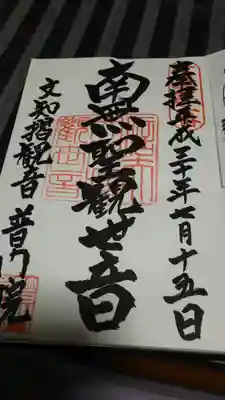 奉拝 平成三十年七月十五日
南無聖観世音
文知摺観音 普門院